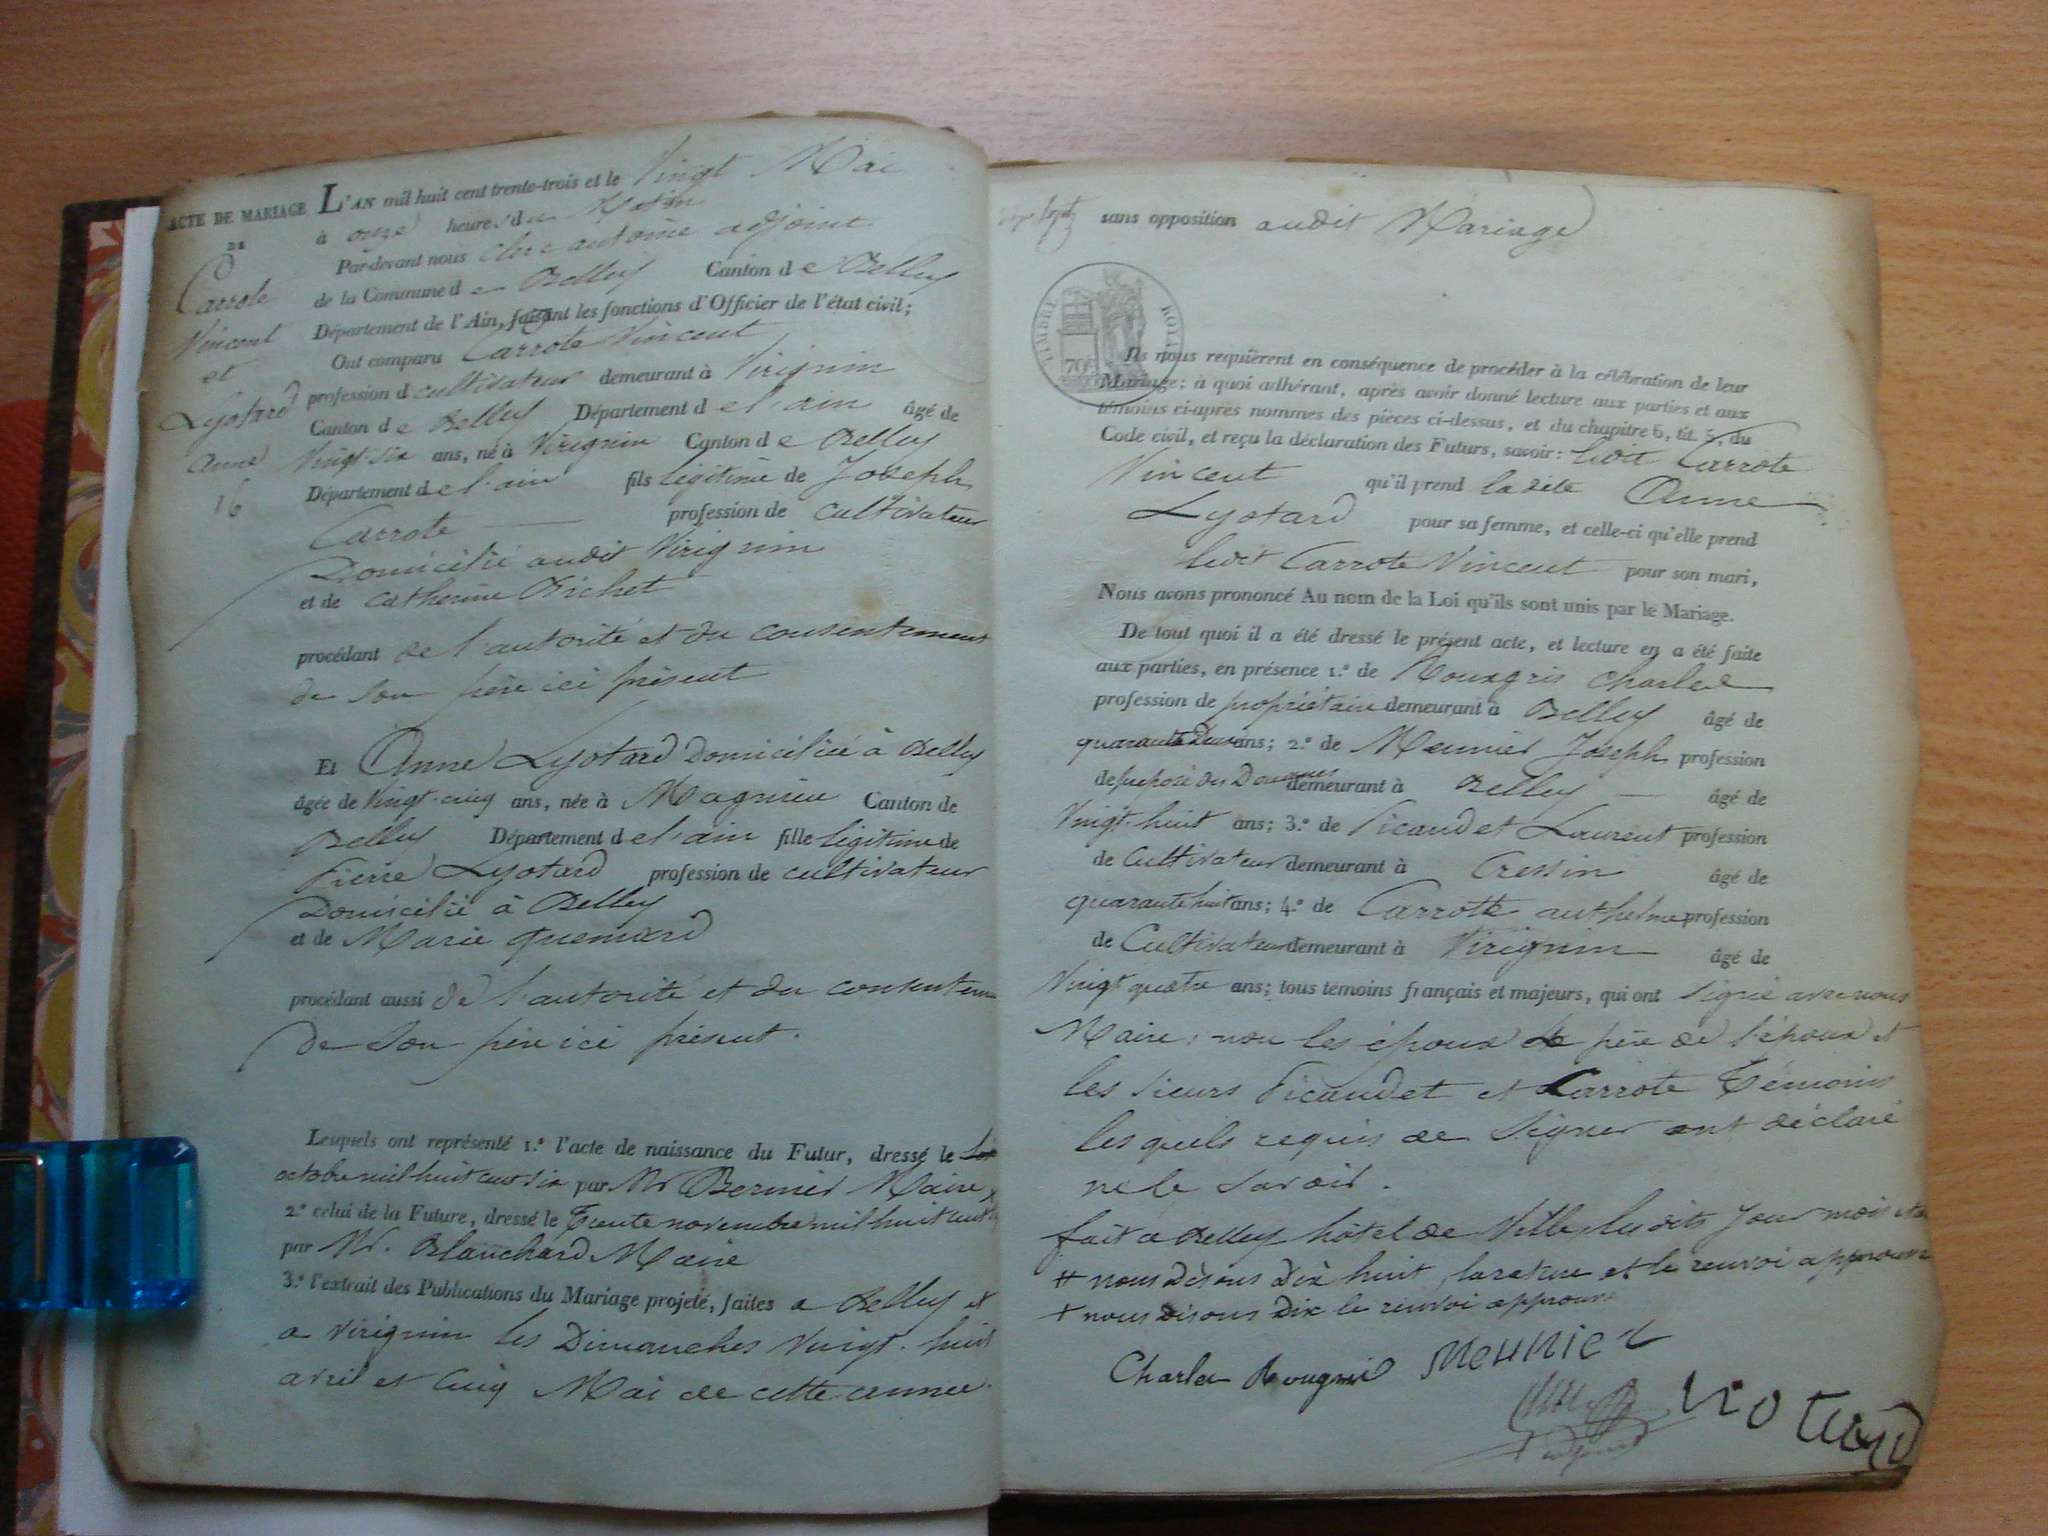 ACTE DE MARIAGE
DE
Carrote
Vincent
et
Lyotard
Anne
16
L'AN mil huit cent trente-trois et le Vingt Mai
à onze heures du Matin
Par-devant nous Clerc antoine adjoint
de la Commune de Belley Canton de Belley
Département de l'Ain, faisant les fonctions d'Officier de l'état civil;
Ont comparu Carrote Vincent
profession d cultivateur demeurant à Virignin
Canton de Belley Département de l'ain âgé de
Vingt-six ans, né à Virignin Canton de Belley
Département de l'ain fils légitime de Joseph
Carrote profession de cultivateur
Domicilié audit Virignin
et de Catherine Richet
procédant de l'autorité et du consentement
de son père ici présent
Et Anne Lyotard Domiciliée à Belley
âgée de Vingt-cinq ans, née à Magnieu Canton de
Belley Département de l'ain fille légitime de
Pierre Lyotard profession de cultivateur
Domicilié à Belley
et de Marie quemard
procédant aussi de l'autorité et du consentem
de son père ici présent.
Lesquels ont représenté 1.º l'acte de naissance du Futur, dressé le
octobre mil huit cent six par Mr Bernier Maire
2.º celui de la Future, dressé le Trente novembre mil huit cent
par Mr. Blanchard Maire
3.º l'extrait des Publications du Mariage projeté, faites a Belley et
a virignin les Dimanches Vingt-huit
avril et Cinq Mai de cette année.
sans opposition audit Mariage
TIMBRE ROYAL
70
Ils nous requièrent en conséquence de procéder à la célébration de leur
Mariage; à quoi adhérant, après avoir donné lecture aux parties et aux
témoins ci-après nommés des pièces ci-dessus, et du chapitre 6, tit. 5, du
Code civil, et reçu la déclaration des Futurs, savoir: ledit Carrote
Vincent qu'il prend ladite Anne
Lyotard pour sa femme, et celle-ci qu'elle prend
ledit Carrote Vincent pour son mari,
Nous avons prononcé Au nom de la Loi qu'ils sont unis par le Mariage.
De tout quoi il a été dressé le présent acte, et lecture en a été faite
aux parties, en présence 1.º de Rougris Charles
profession de propriétaire demeurant à Belley âgé de
quarante Deux ans; 2.º de Meunier Joseph profession
de préposé des Douanes demeurant à Belley âgé de
Vingt-huit ans; 3.º de Picaudet Laurent profession
de Cultivateur demeurant à Cressin âgé de
quarante huit ans; 4.º de Carrote anthelme profession
de Cultivateur demeurant à Virignin âgé de
Vingt quatre ans; tous témoins français et majeurs, qui ont signé avec nous
Maire, non les époux le père de l'époux et
les sieurs Picaudet et Carrote Témoins
lesquels requis de signer ont déclaré
ne le savoir.
fait a Belley hôtel de Ville, les dits Jour mois et an
# nous disons dix huit, la rature et le renvoi approuvé
+ nous disons dix le renvoi approuvé
Charles Rougris Meunier
Liotard
adjoint